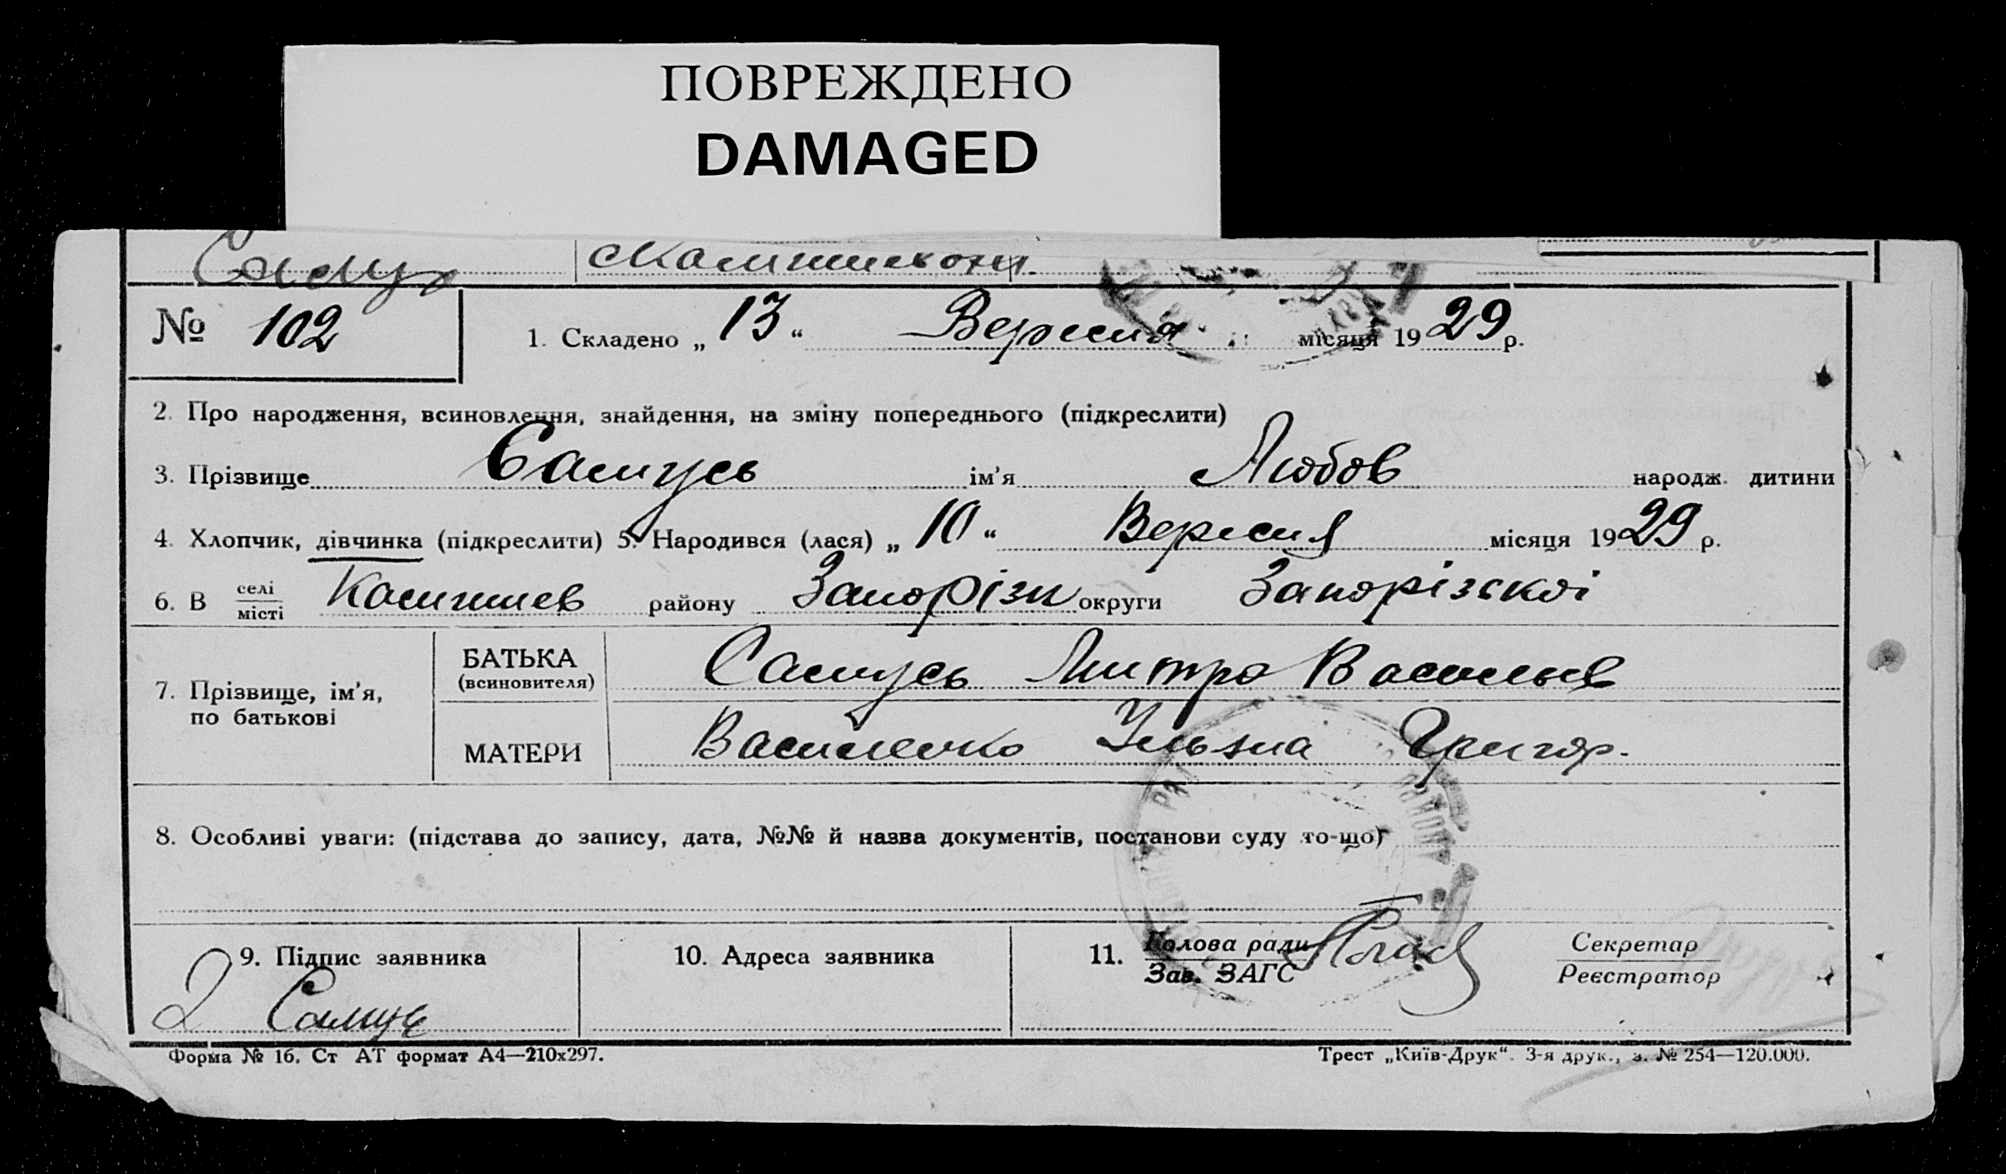 ПОВРЕЖДЕНО
DAMAGED
№ 102
1. Складено „ 13 “ Вересня місяця 1929 р.
2. Про народження, всиновлення, знайдення, на зміну попереднього (підкреслити)
3. Прізвище Самусь ім'я Любов народж. дитини
4. Хлопчик, дівчинка (підкреслити) 5. Народився (лася) „ 10 “ Вересня місяця 1929 р.
6. В селі
місті
району Запоріжж округи Запорізької
7. Прізвище, ім'я,
по батькові
БАТЬКА
(всиновителя)
Самусь Дмитро Васильев
МАТЕРИ
Василенко Ульяна Григор.
8. Особливі уваги: (підстава до запису, дата, №№ й назва документів, постанови суду то-що)
9. Підпис заявника
Самусь
10. Адреса заявника
11. Голова ради
Зав. ЗАГС
Секретар
Реєстратор
Форма № 16. Ст АТ формат А4—210х297.
Трест „Київ-Друк“. 3-я друк., з. № 254—120.000.